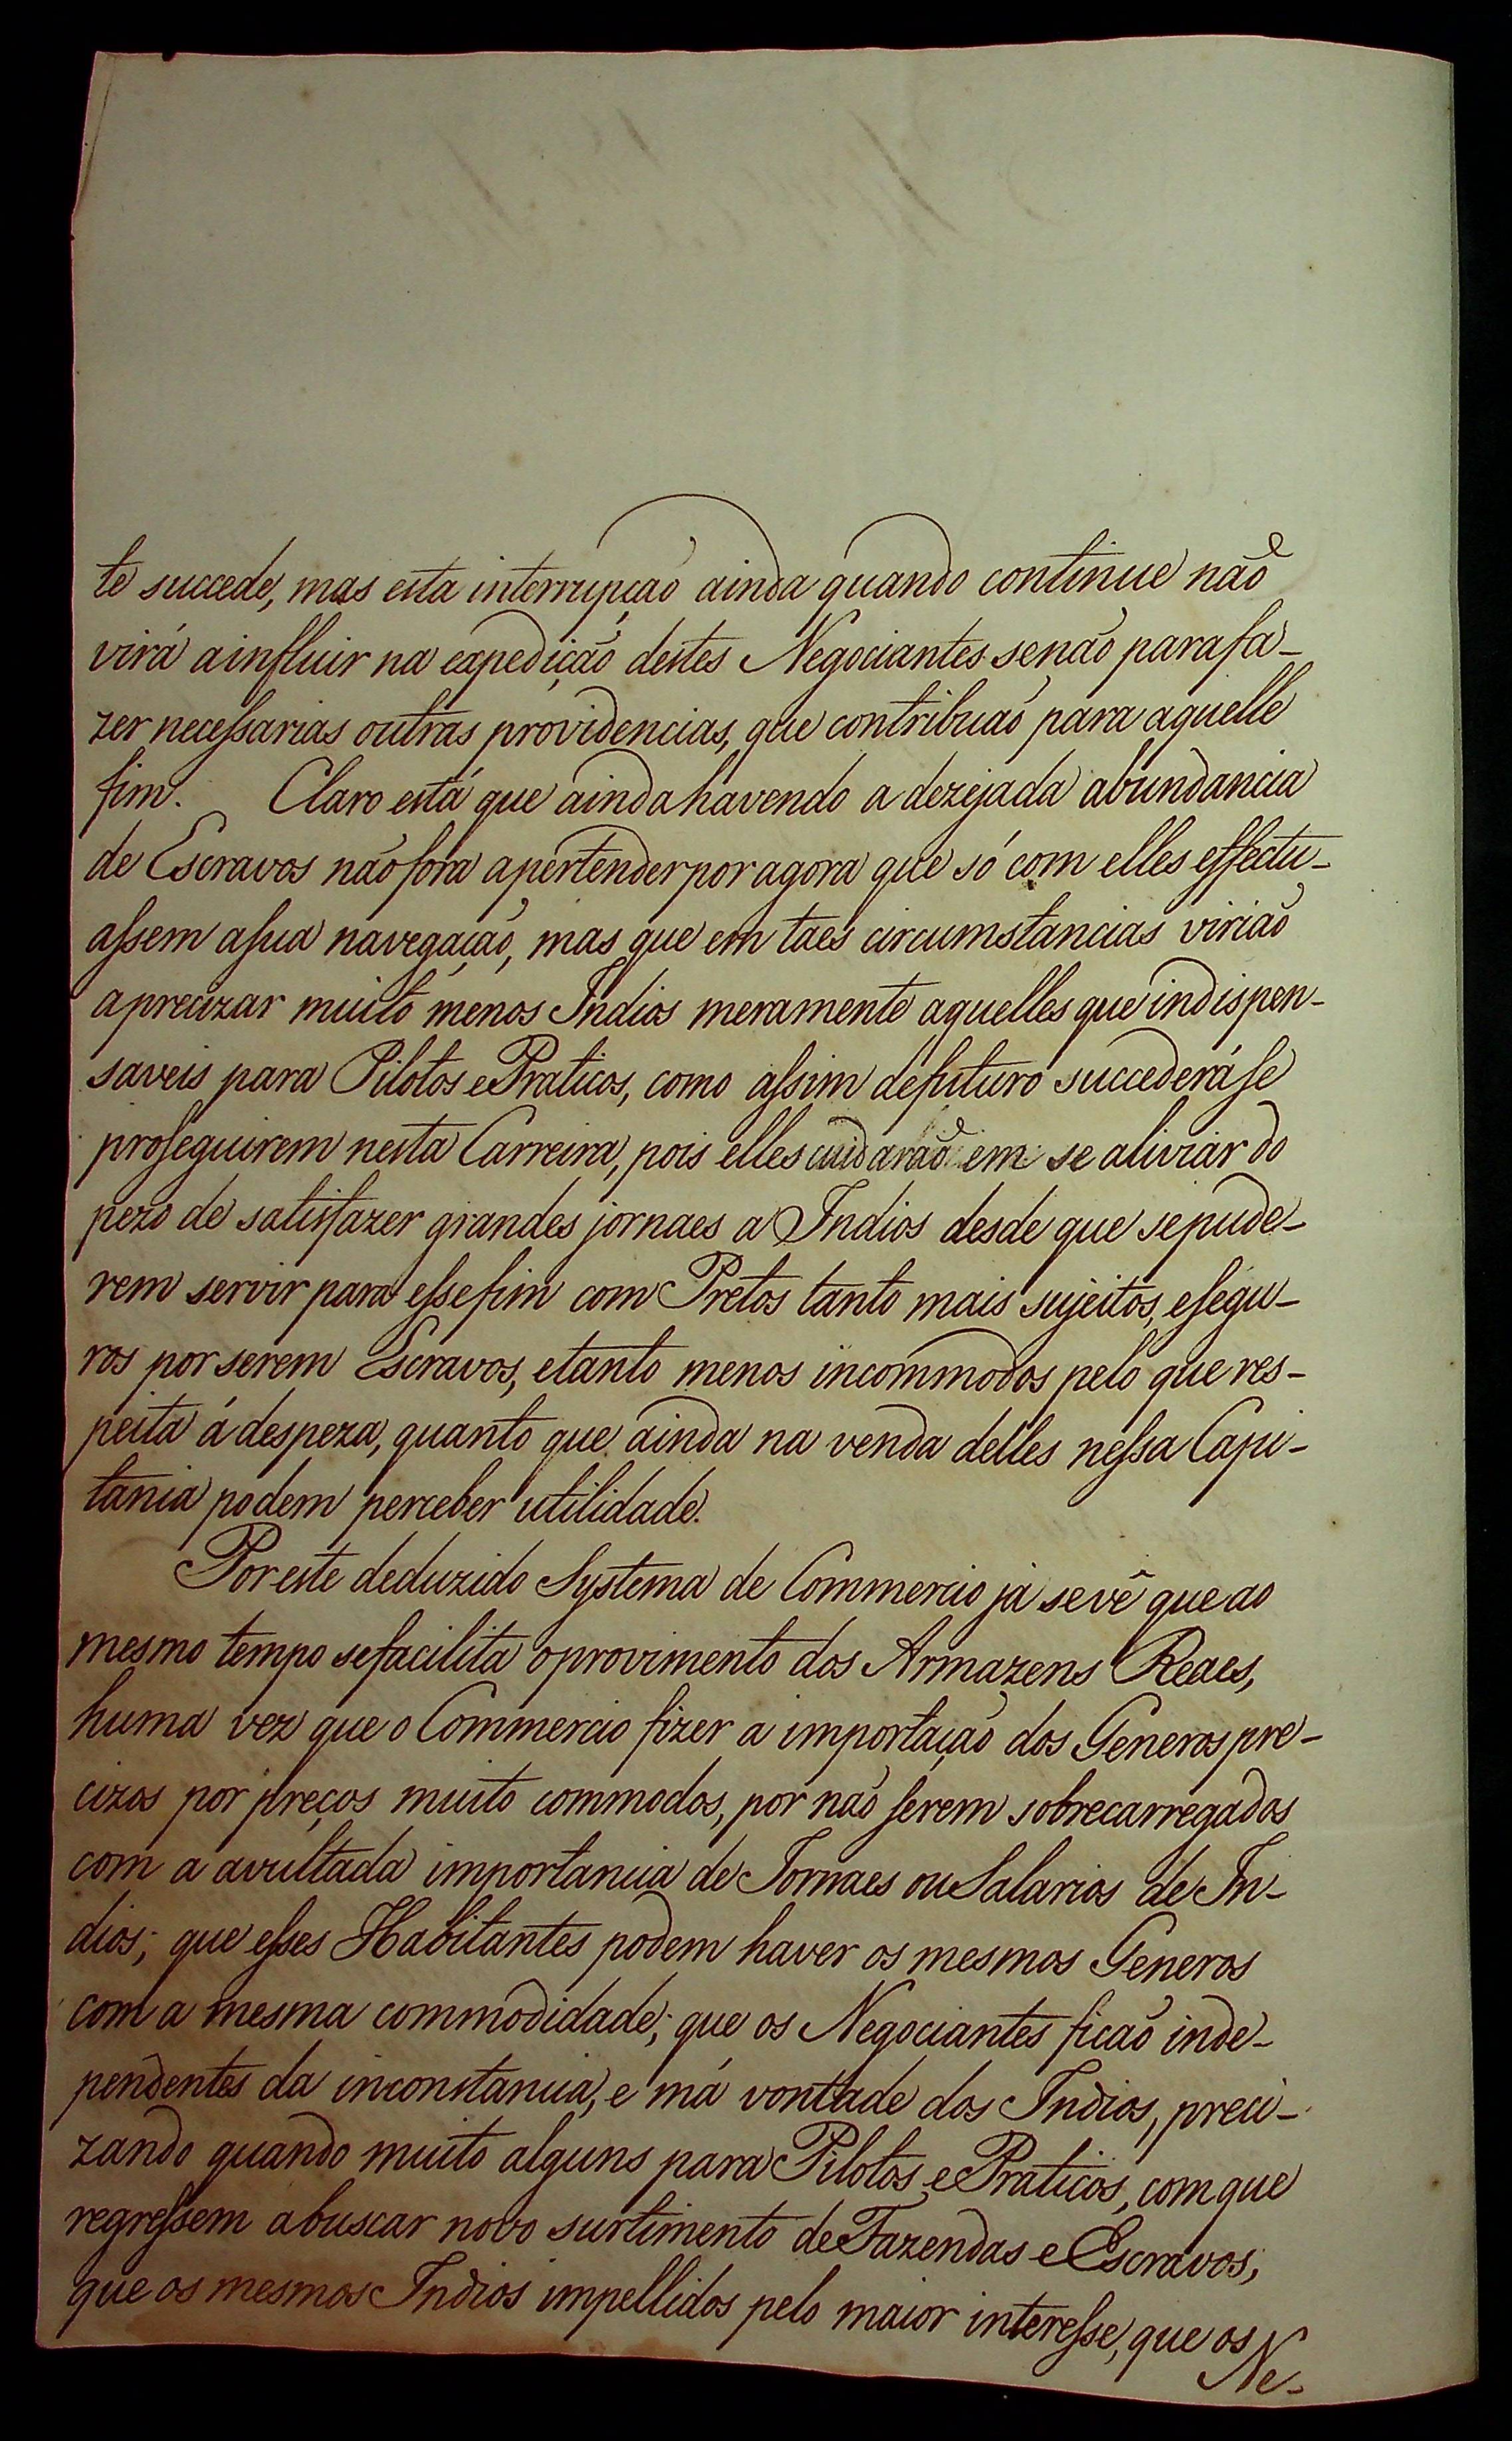 te succede, mas esta interrupção ainda quando continue não
virá a influir na expedição destes Negociantes senão para fa-
zer necessarias outras providencias, que contribuão para aquelle
fim. Claro está que ainda havendo a dezejada abundancia
de Escravos não fora apertender por agora que só com elles effectu-
assem a sua navegação, mas que em taes circumstancias virião
aprecizar muito menos Indios meramente aquelles que indispen-
saveis para Pilotos e Praticos, como assim defuturo succederá se
proseguirem nesta Carreira, pois elles cuidarão em se aliviar do
pezo de satisfazer grandes jornaes a Indios desde que se pude-
rem servir para esse fim com Pretos tanto mais sujeitos, e segu-
ros por serem Escravos, e tanto menos incommodos pelo que res-
peita á despeza, quanto que ainda na venda delles nessa Capi-
tania podem perceber utilidade.
Por este deduzido Systema de Commercio já se vê que ao
mesmo tempo se facilita o provimento dos Armazens Reaes,
huma vez que o Commercio fizer a importação dos Generos pre-
cizos por preços muito commodos, por não serem sobrecarregados
com a avultada importancia de Jornaes ou Salarios de In-
dios; que esses Habitantes podem haver os mesmos Generos
com a mesma commodidade; que os Negociantes ficão inde-
pendentes da inconstancia, e má vontade dos Indios, preci-
zando quando muito alguns para Pilotos e Praticos, com que
regressem a buscar novo surtimento de Fazendas e Escravos;
que os mesmos Indios impellidos pelo maior interesse, que os
Ne-